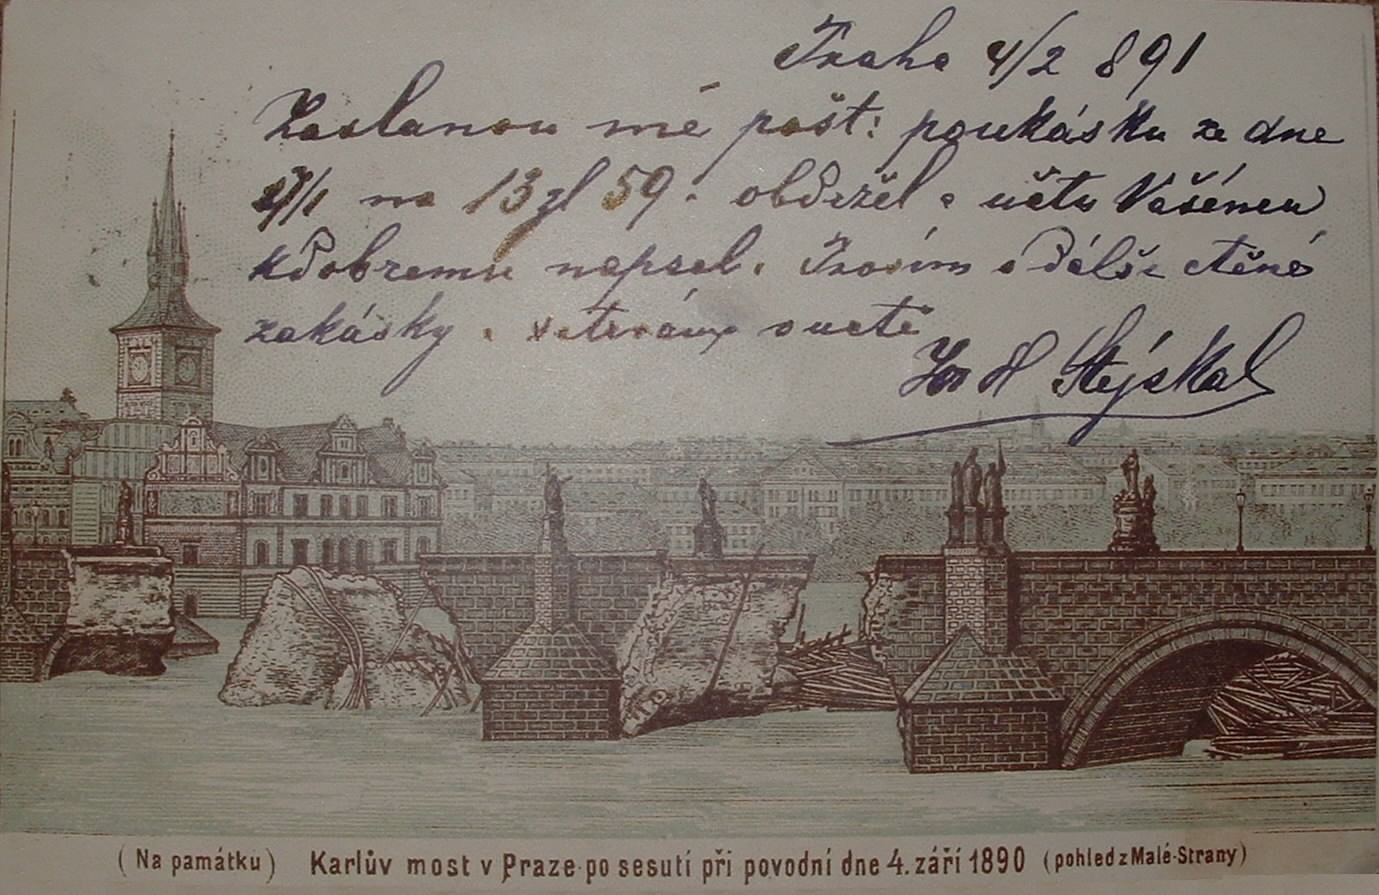 Praha 4/2 891
Zaslanou mě pošt: poukásku ze dne
27/1 na 13 zl 59. obdržel a učtu Vašémeu
kdobremu napsal. Prosím o dálší ctěné
zakásky a
Jos A Stejskal
(Na památku) Karlův most v Praze po sesutí při povodní dne 4. září 1890 (pohled z Malé-Strany)